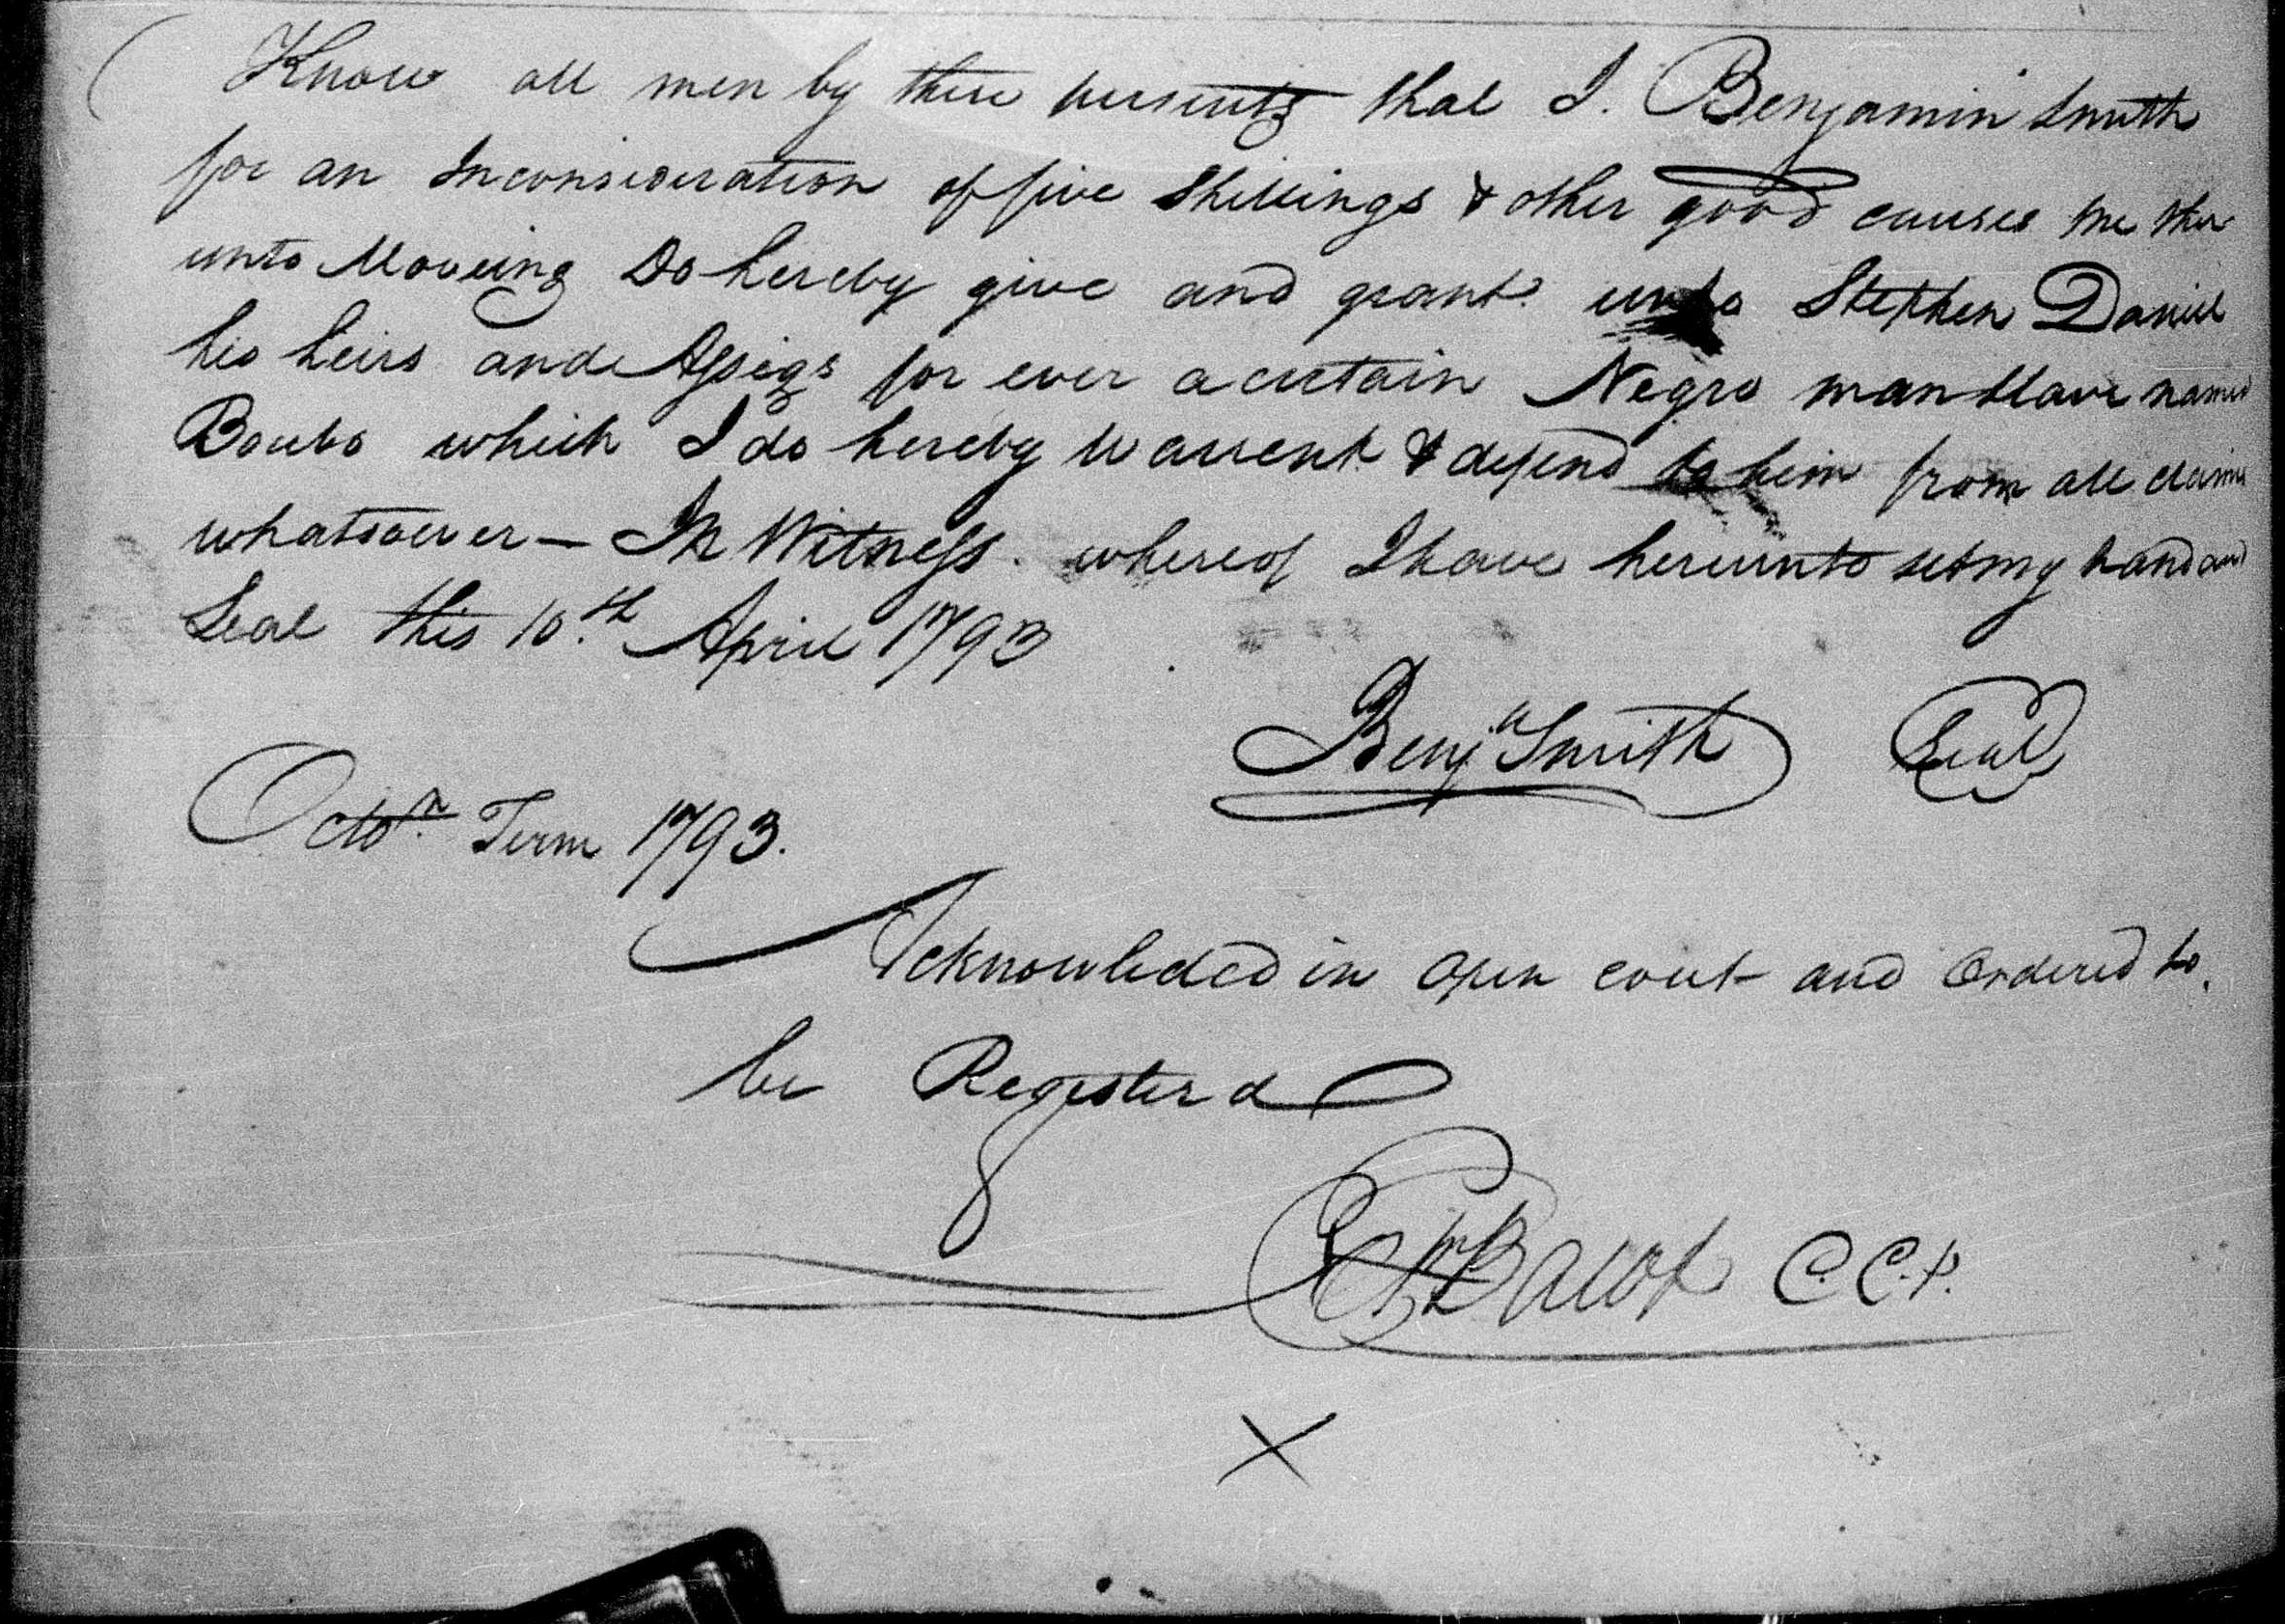 Know all men by these presents that I. Benjamin Smith
for an Inconsideration of five Shillings & other good causes me ther
unto Moveing Do hereby give and grant unto Stephen Daniel
his heirs and Assigs for ever a certain Negro man Slave named
which I do hereby Warrent & defend to him from all claims
whatsoever — In Witness whereof I have hereunto set my hand and
Seal this 10th April 1793
Benja Smith Seal
Octor Term 1793.
Acknowleded in open cout and Ordered to
be Registerd
C.C.
X